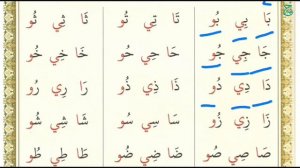 بَا بِي بُو تَا تِي تُو ثَا ثِي ثُو
جَا جِي جُو حَا حِي حُو خَا خِي خُو
دَا دِي دُو ذَا ذِي ذُو رَا رِي رُو
زَا زِي زُو سَا سِي سُو شَا شِي شُو
صَا صِي صُو ضَا ضِي ضُو طَا طِي طُو